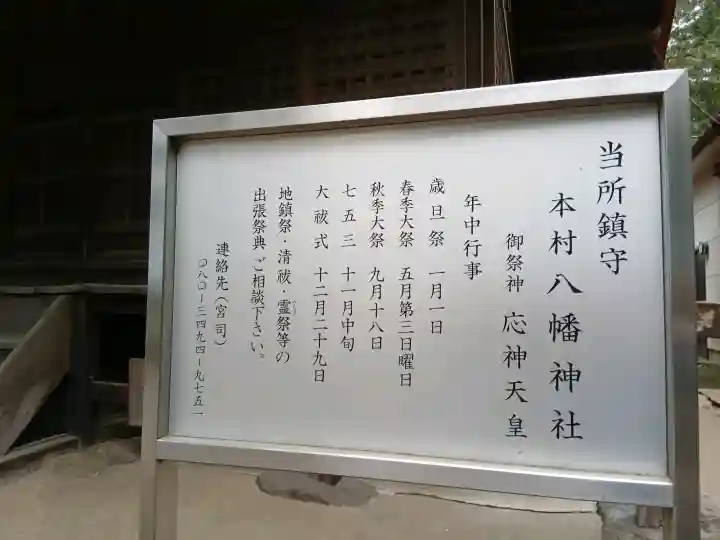 当所鎮守
本村八幡神社
御祭神 応神天皇
年中行事
歳旦祭 一月一日
春季大祭 五月第三日曜日
秋季大祭 九月十八日
七五三 十一月中旬
大祓式 十二月二十九日
地鎮祭・清祓・霊祭等の
出張祭典ご相談下さい。
連絡先（宮司）
〇八〇ー三四九四ー九七五一